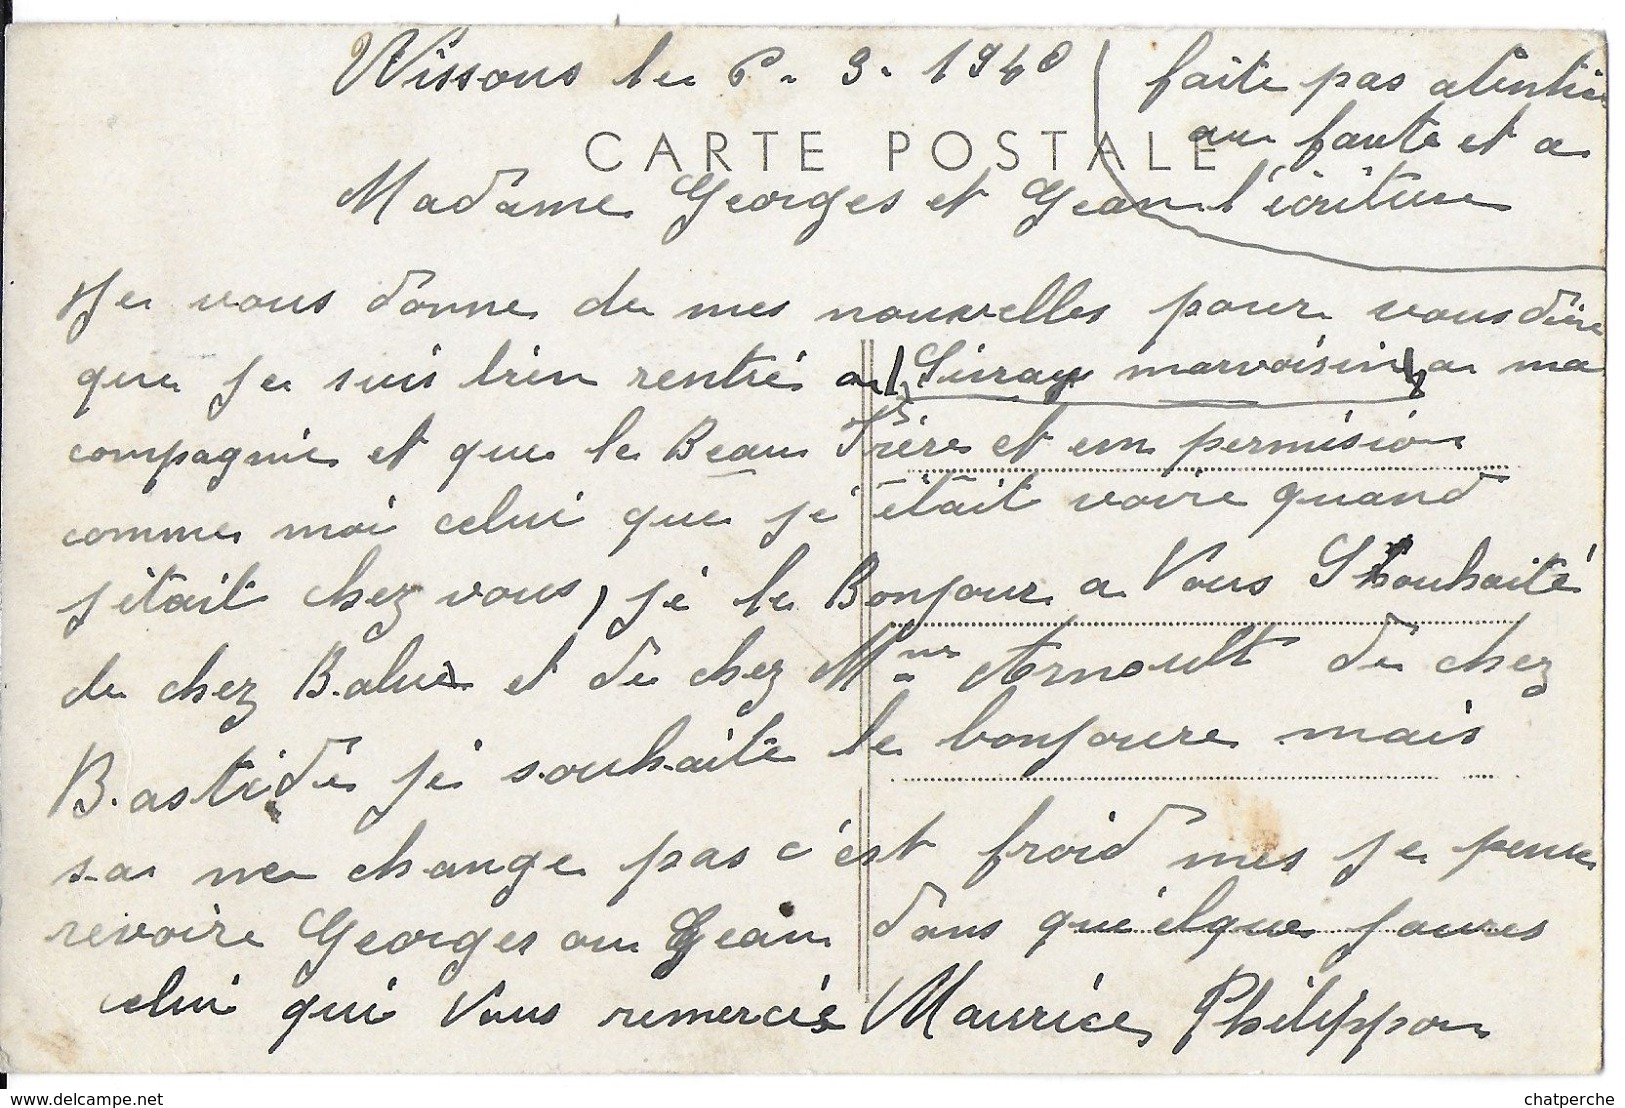 Wissous le 6. 3. 1940
faite pas atentio
au faute et a
l'écriture
CARTE POSTALE
Madame Georges et Gean
Je vous donne de mes nouvelles pour vous dire
que je suis bien rentré a marvoisin a ma
compagnie et que le Beau Frère et em permision
comme moi celui que jé était voire quand
j'était chez vous, jé le Bonjour a Vous Shouhaité
de chez Balue et de chez Mme Arnoult de chez
Bastide jé souhaite le bonjoure mais
sa ne change pas c'est froid mes je pense
revoire Georges ou Gean dans quélques joures
celui qui Vous remercie Maurice Philippon
delcampe.net
chatperche